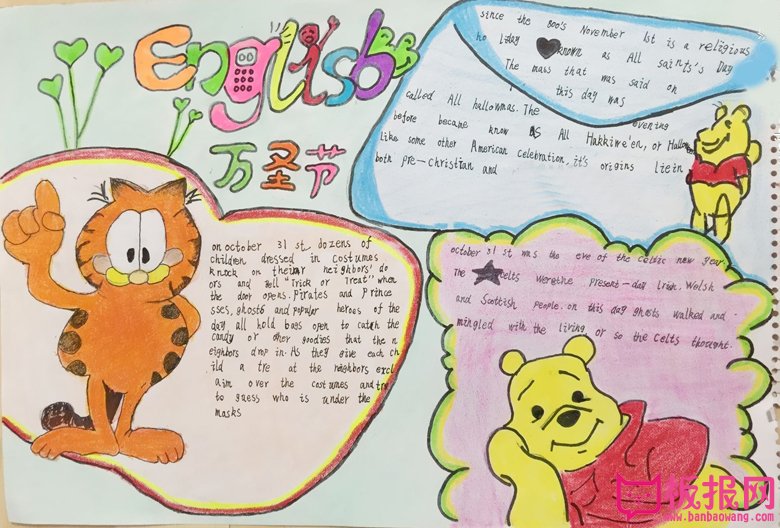 English
万圣节
since the 800's November 1st is a religious
holiday known as All saints's Day
The mass that was said on
this day was
called All hallowmas. The evening
before became know as All Hakkiwe'en, or Hallow
like some other American celebration, it's origins lie in
both pre-christian and
on october 31 st dozens of
children dressed in costumes
knock on their neighbors' do
ors and yell "Trick or Treat" when
the door opens. Pirates and prince
sses, ghosts and popular heroes of the
day all hold bags open to catch the
candy or other goodies that the n
eighbors drop in. As they give each ch
ild a tre at the neighbors excl
aim over the costumes and try
to guess who is under the
masks
october 31 st was the eve of the celtic new year.
The celts were the present-day Irish. Welsh
and Scottish people. on this day ghosts walked and
mingled with the living or so the celts thought.
板报网
www.banbaowang.com